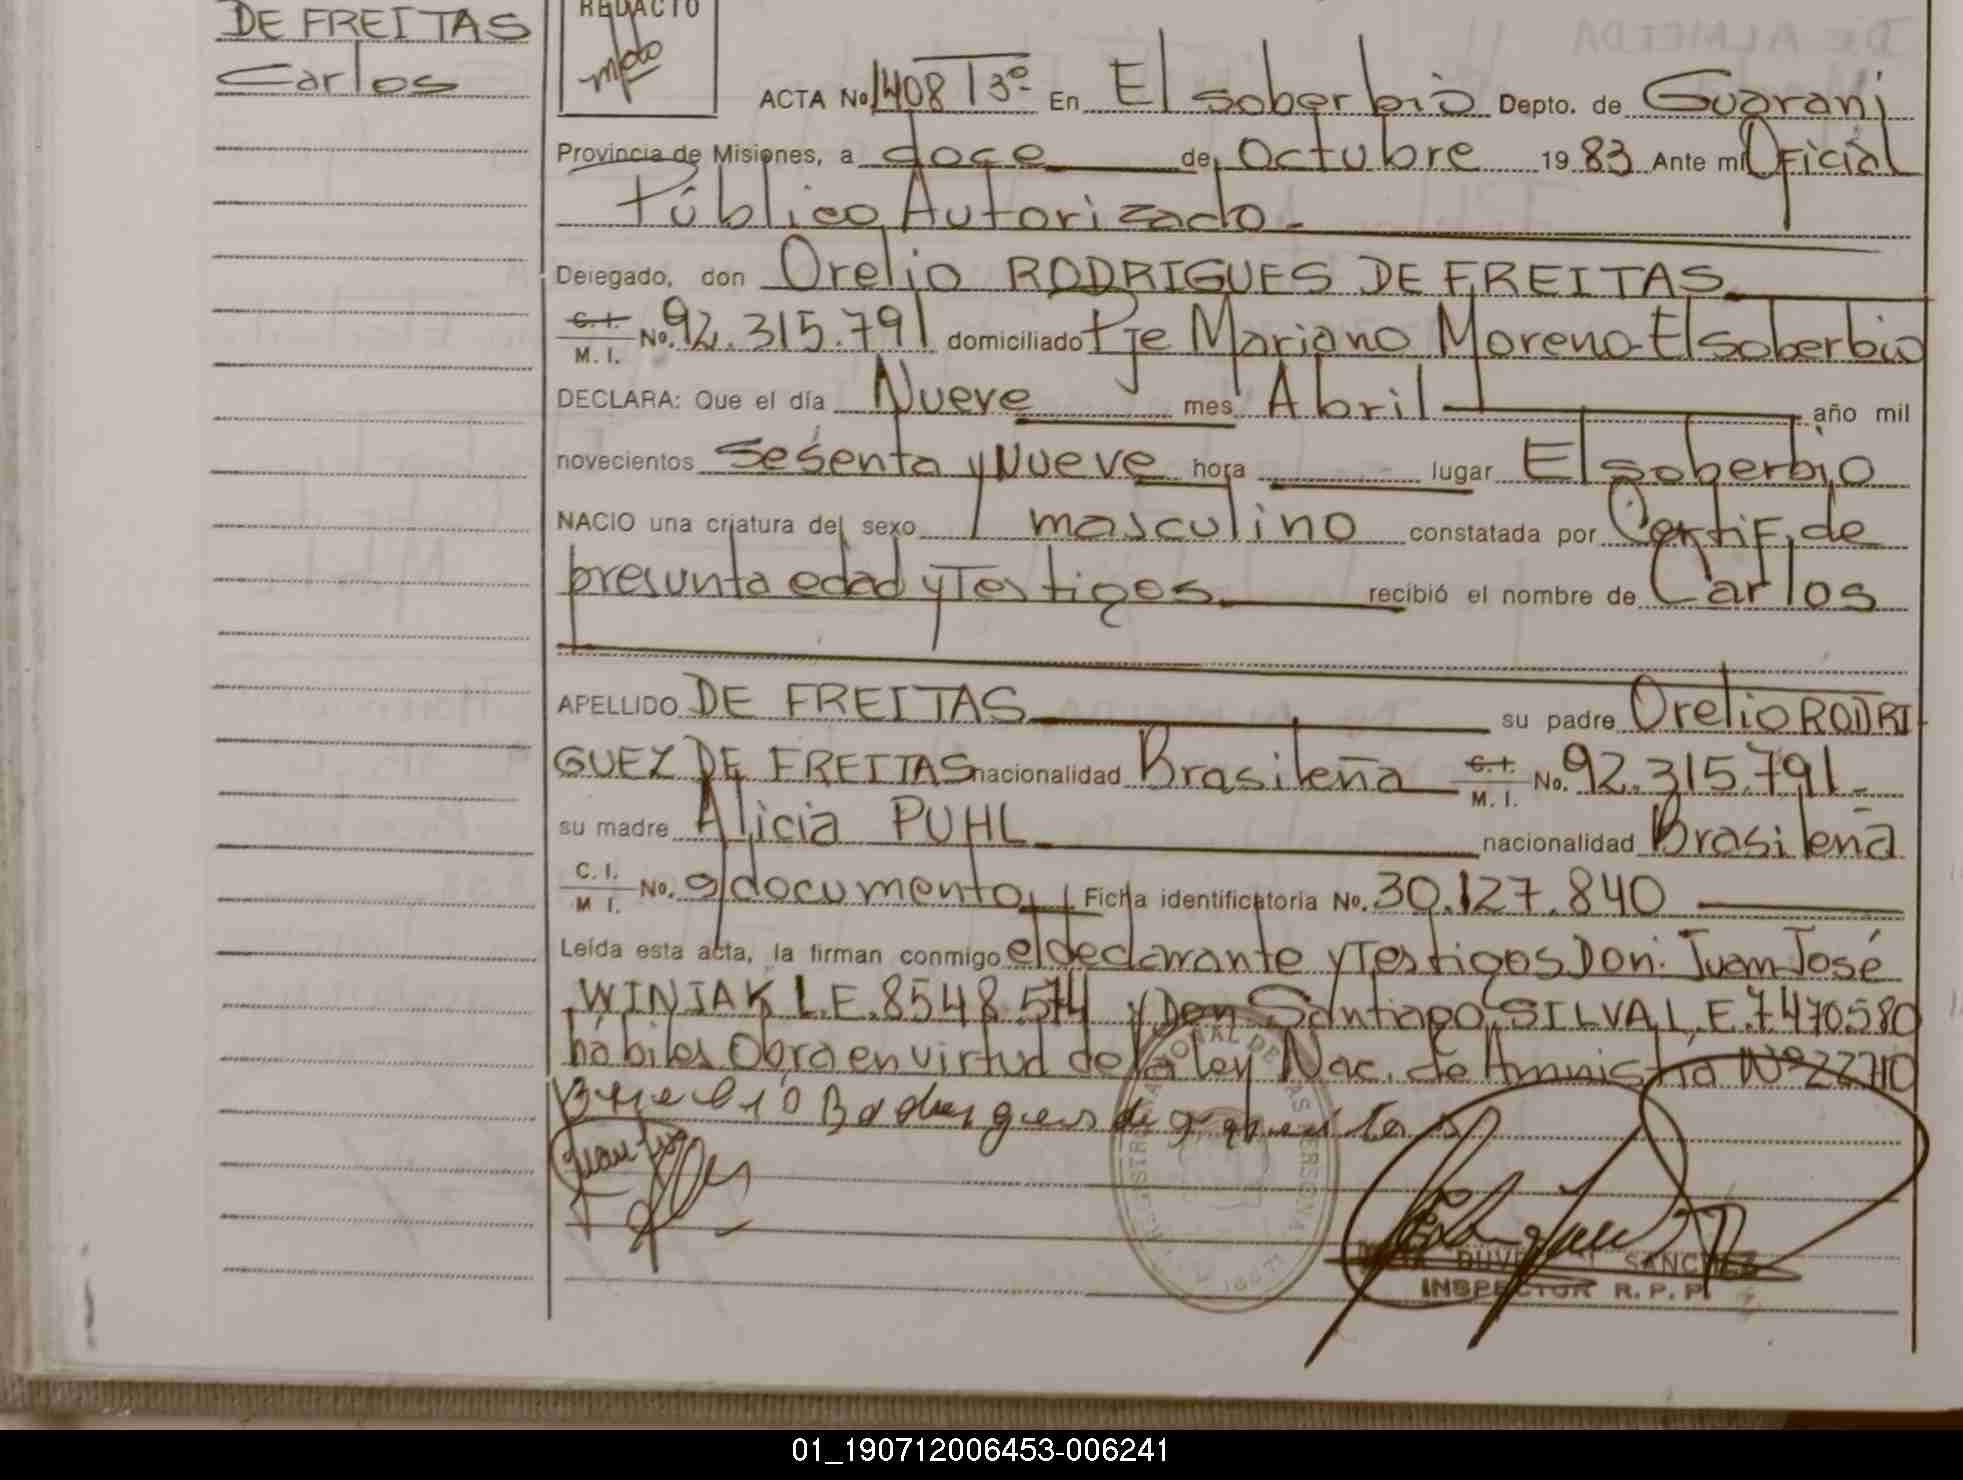 DE FREITAS
Carlos
REDACTO
ACTA No 1408 T 3º En El soberbio Depto. de Guarani
Provincia de Misiones, a doce de Octubre 19 83 Ante mi Oficial
Público Autorizado.-
Delegado, don Orelio RODRIGUES DE FREITAS
C. I.
M. I. No. 92.315.791 domiciliado Pje Mariano Moreno-El soberbio
DECLARA: Que el día Nueve mes Abril año mil
novecientos sesenta y Nueve hora lugar El soberbio
NACIO una criatura del sexo masculino constatada por Certif. de
presunta edad y Testigos recibió el nombre de Carlos
APELLIDO DE FREITAS su padre Orelio RODRI
GUEZ DE FREITAS nacionalidad Brasileña C. I.
M. I. No. 92.315.791.-
su madre Alicia PUHL nacionalidad Brasileña
C. I.
M I. No. s/documento Ficha identificatoria No. 30.127.840
Leída esta acta, la firman conmigo el declarante y Testigos Don: Juan José
WINIAK L.E. 8548.574 y Don Santiago SILVA L.E. 7.470.580
hábiles Obra en virtud de la ley Nac. de Aministia Nº 22710
SANCHEZ
INSPECTOR R. P. P.
01_190712006453-006241